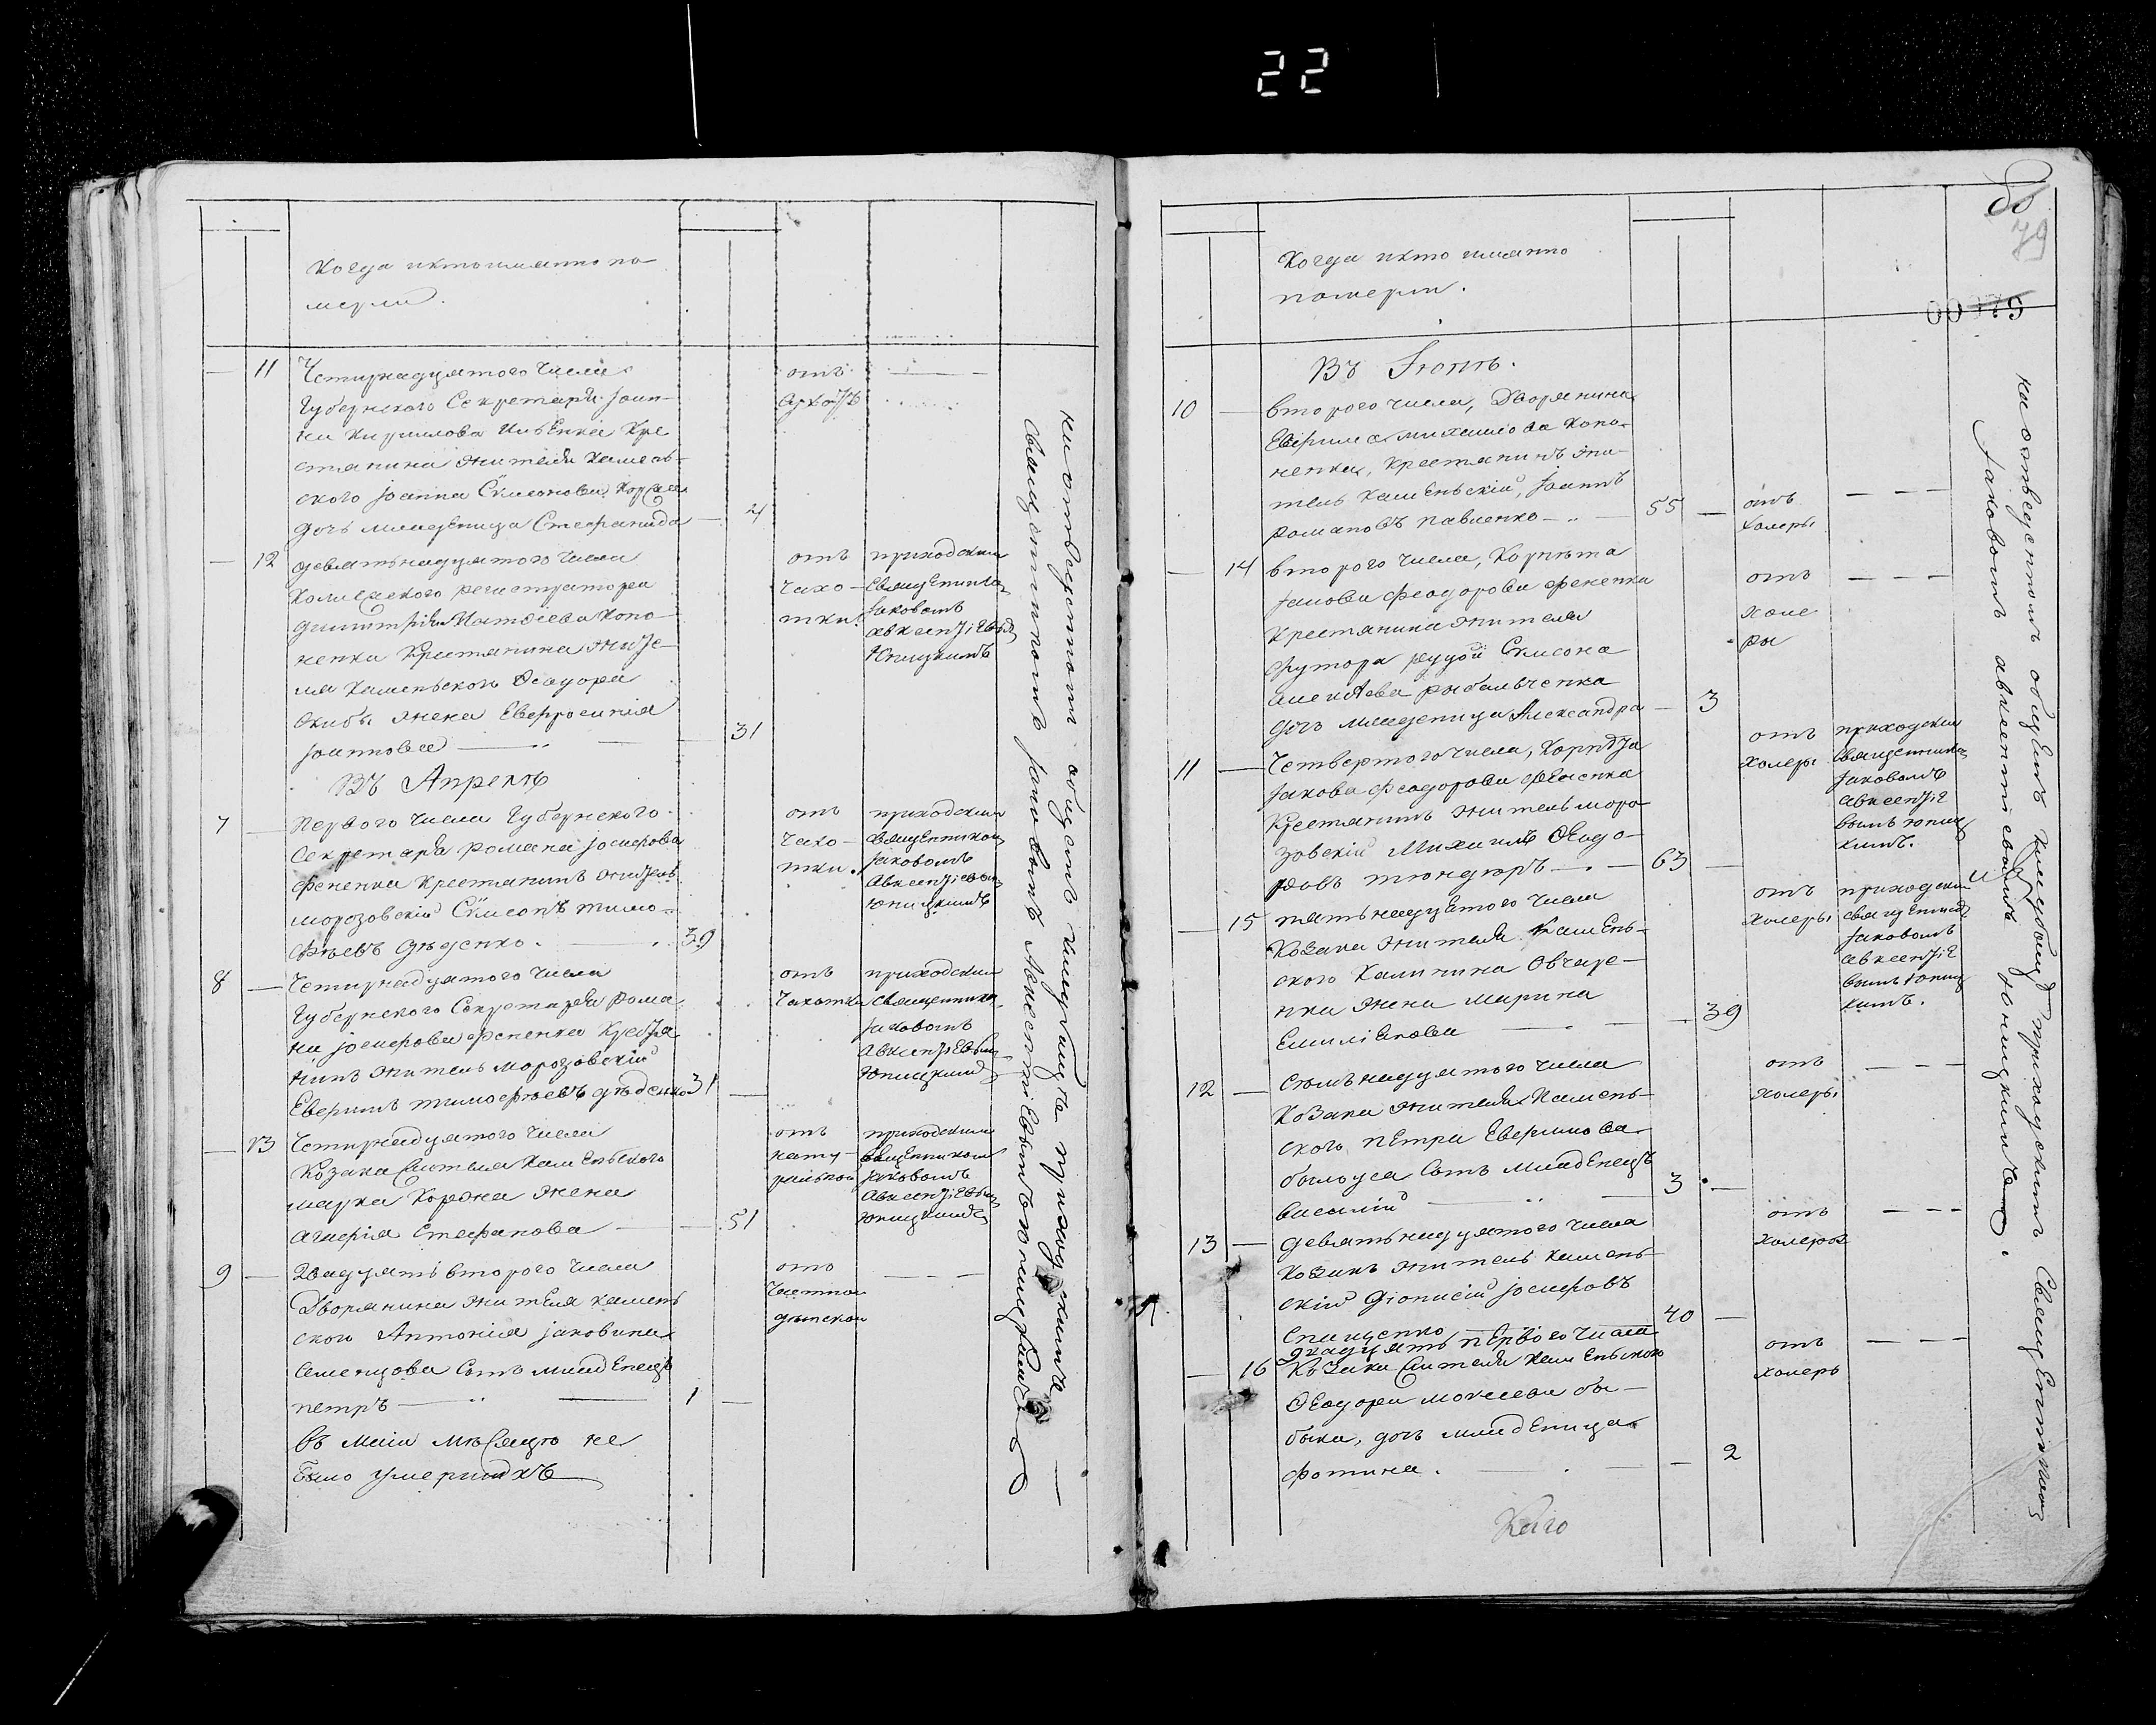 22
Когда и кто имянно по
мерли.
11 Четирнадцятого числа
Губернского Секретаря Іоан-
на Кирилова Ильенка Кре
стянина жителя Камень-
ского Іоанна Сѵмеонова
дочь младеница Стефанида — 4
отъ
12 девятьнадцятого числа
Колежского регистратора
Димитрія Матѳіева Коно-
ненка Крестянина жите-
ля Каменьского Ѳеодора
жена Евфросинія
Іоаннова — 31
отъ
Чахо-
тки.
приходским
Священником
Іаковомъ
Авксентіевым
Юницкимъ
Въ Апрелѣ
7 — Первого числа Губернского
Секретаря Романа Іосифова
Фененка Крестянинъ житель
морозовскій Сѵмеонъ Тимо-
фѣевъ дѣденко. 39
отъ
Чахо-
тки.
приходским
Священником
Іаковомъ
Авксентіевым
Юницкимъ
8 — Четирнадцятого числа
Губернского Секретаря Рома
на Іосифова Фененка Кретя
нинъ житель морозовскій
Евфимъ Тимофѣевъ дѣденко 31 —
отъ
Чахотки
приходским
Священником
Іаковомъ
Авксентіевым
Юницким
— 13 Четирнадцятого числа
Козака жителя Каменьского
Марка Коржа жена
Агафія Стефанова — 51
отъ
нату-
ральной
приходским
Священником
Іаковомъ
Авксентіевым
Юницким
9 — Двадцять второго числа
Дворянина жителя Камень
ского Антонія Іаковина
Семенцова Сынъ младенецъ
петръ — 1 —
отъ
дѣтской
въ маіи мѣсяцѣ не
было умершихъ
на отведенномъ общемъ кладбищѣ приходскимъ
Священникомъ Іаковомъ Авксентіевымъ Юницкимъ
80
79
Когда и кто имянно
померли.
Въ Іюнѣ.
10 — второго числа, Дворянина
Евфима михаилова Коно-
ненка, Крестянинъ жи-
тель Каменьскій, Іоаннъ
Романовъ Павленко — 55 —
отъ
холеры
— 14 второго числа, Корнета
Іакова Феодорова Фененка
Крестянина жителя
Футора рудой Сѵмеона
Алексѣева рыбальченка
дочь младеница Александра — 3
отъ
холе
ры
11 — Четвертого числа, Корнета
Іакова Феодорова Фененка
Крестянинъ житель моро-
зовскій Михаилъ Ѳеодо-
ровъ тюндюръ — 63 —
отъ
холеры
приходским
Священником
Іаковомъ
Авксентіе
вымъ Юниц
кимъ.
— 15 пятьнадцятого числа
Козака жителя Камень-
ского Калинина Овчаре-
нка жена марина
Емиліенова — 39
отъ
холеры
приходским
Іаковомъ
Авксентіе
вымъ Юниц
кимъ.
12 — Семьнадцятого числа
Козака жителя Камень-
ского петра Евфимова
былоуса Сынъ младенецъ
василій — 3 —
отъ
холеры
13 — девятьнадцятого числа
Козакъ житель Камень-
скій Діонисій Іосифовъ
40 —
отъ
холеры
двадцять первого числа
— 16 Козака жителя Каменьского
Ѳеодора моисеева ба-
бака, дочь младеница
фотина. — 2
отъ
холеры
на отведенномъ общемъ кладбищѣ приходскимъ Священникомъ
Іаковомъ Авксентіевымъ Юницкимъ.